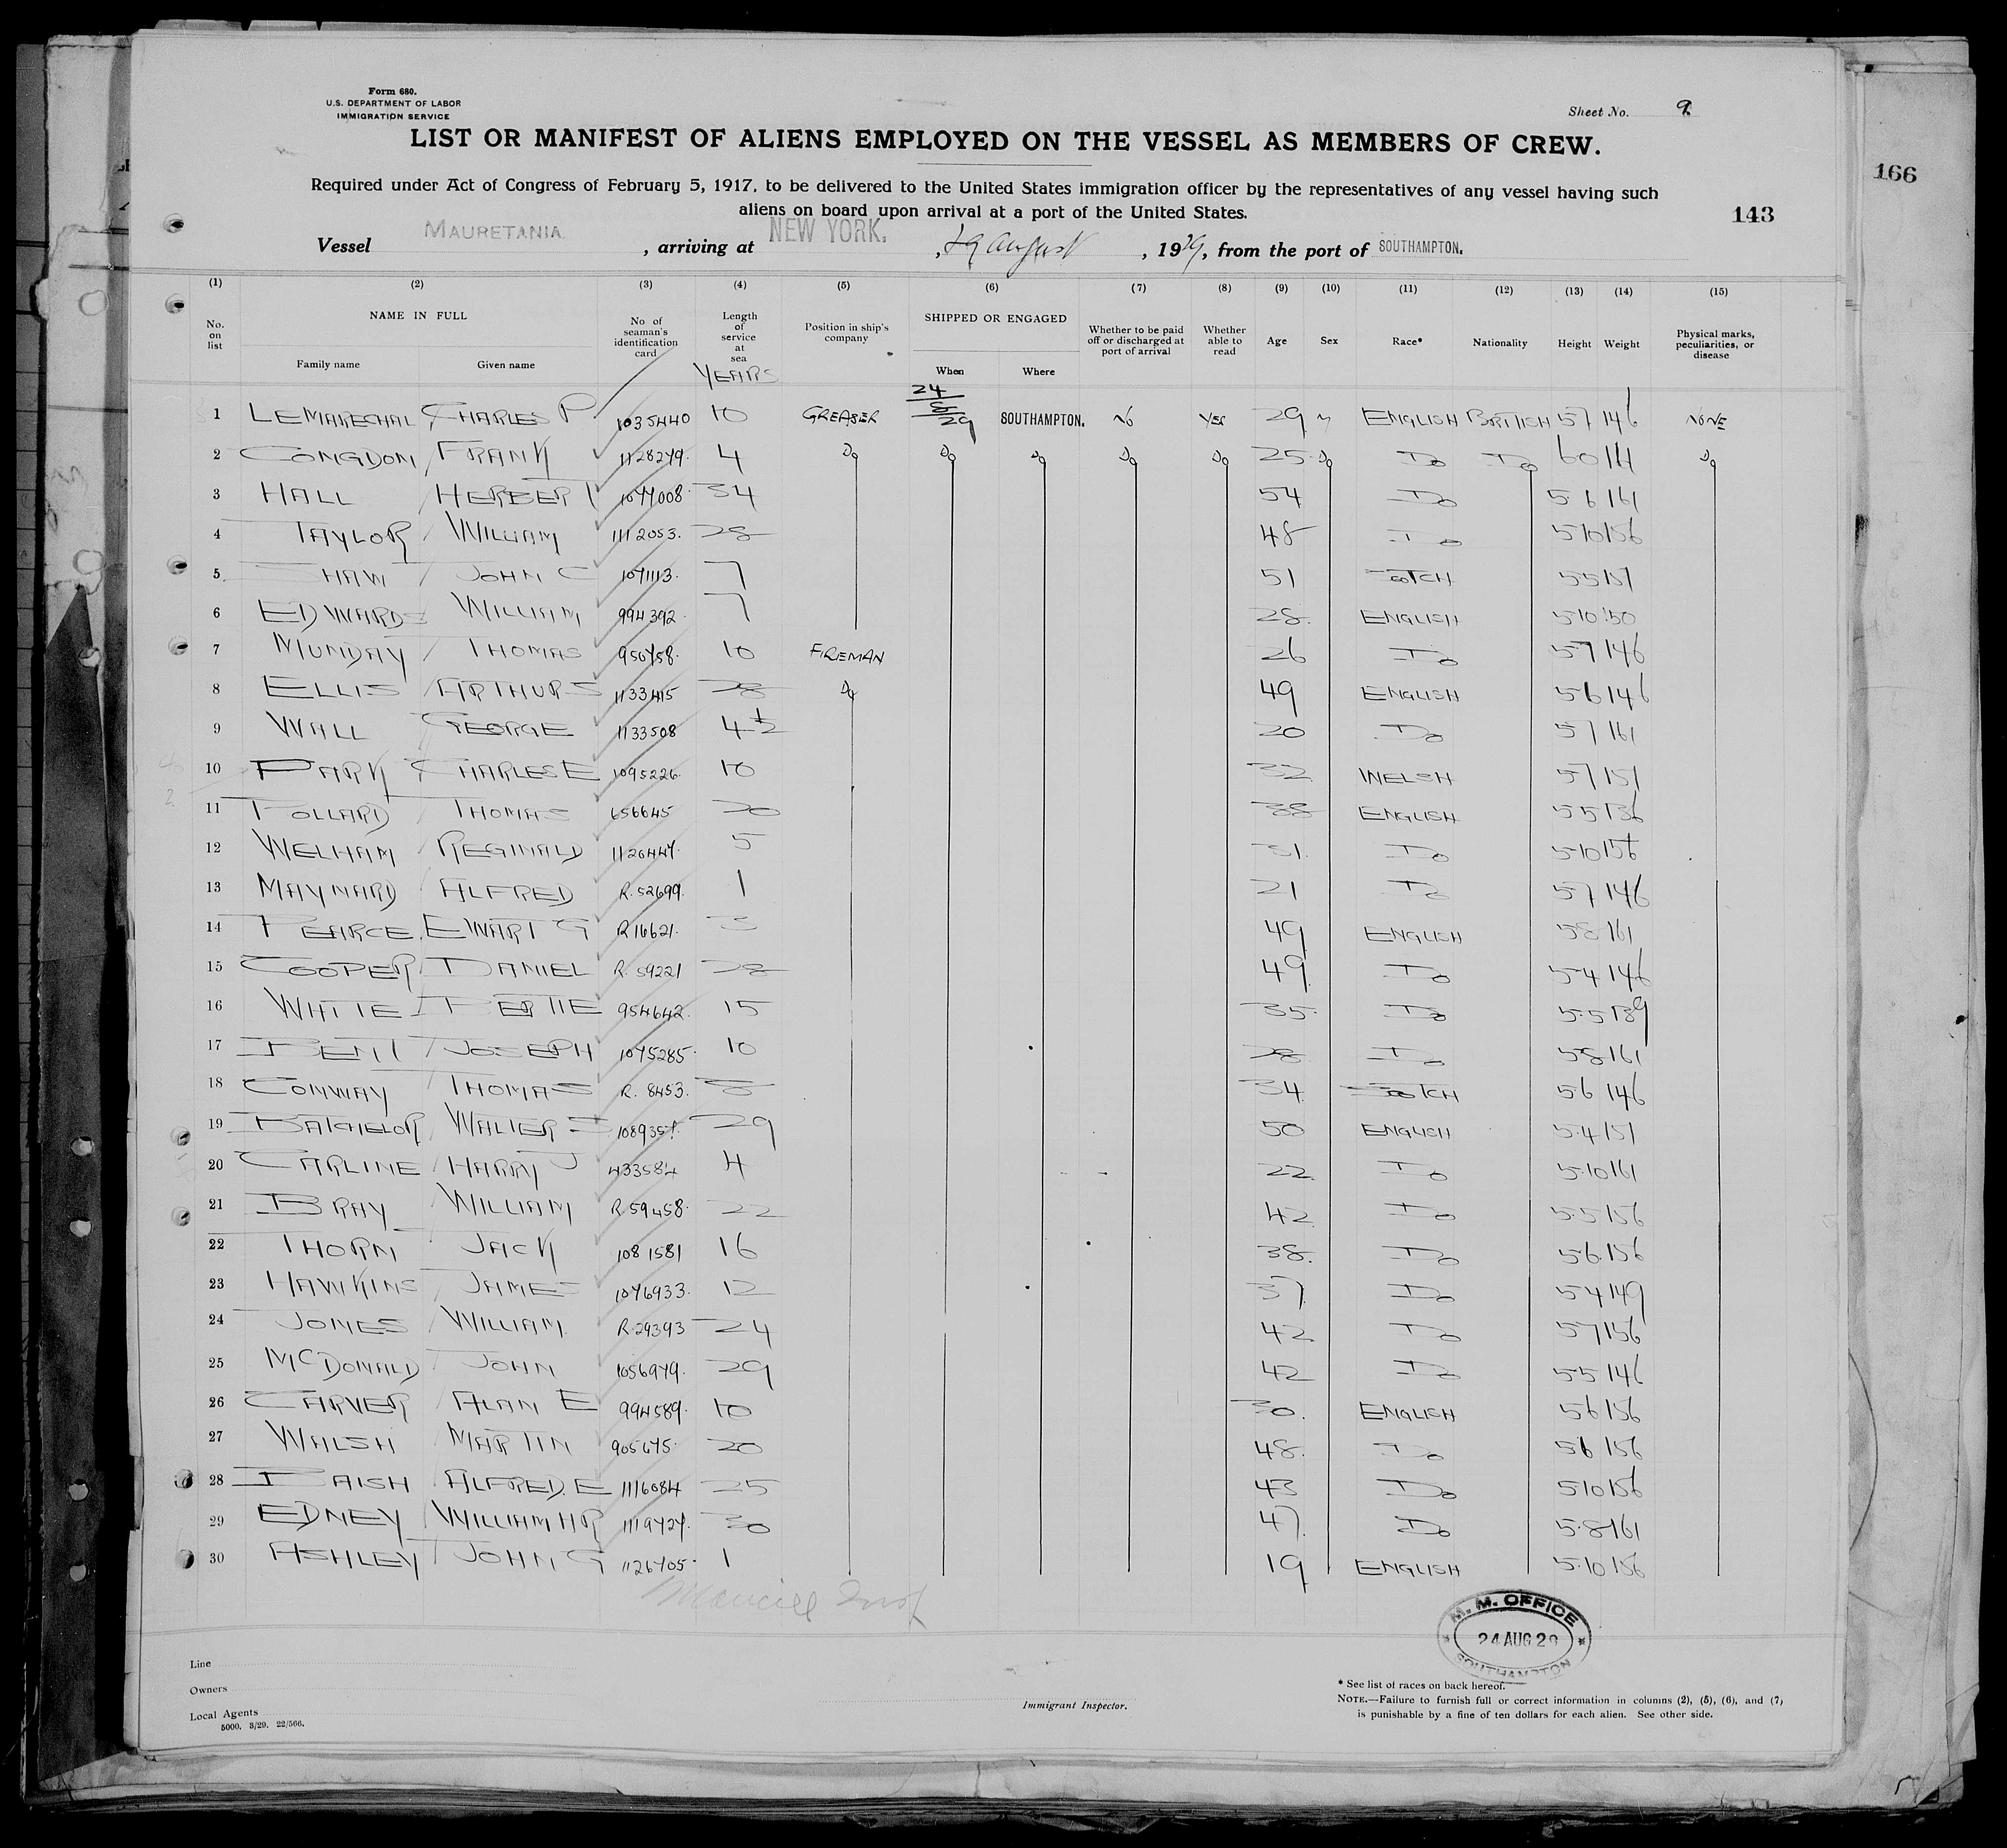 Form 680.
U.S. DEPARTMENT OF LABOR
IMMIGRATION SERVICE
Sheet No. 9
LIST OR MANIFEST OF ALIENS EMPLOYED ON THE VESSEL AS MEMBERS OF CREW.
166
Required under Act of Congress of February 5, 1917, to be delivered to the United States immigration officer by the representatives of any vessel having such
aliens on board upon arrival at a port of the United States.
143
Vessel MAURETANIA , arriving at NEW YORK. , 29 August , 1929, from the port of SOUTHAMPTON.
(1) (2) (3) (4) (5) (6) (7) (8) (9) (10) (11) (12) (13) (14) (15)
No. on list NAME IN FULL Family name Given name No of seaman's identification card Length of service at sea YEARS Position in ship's company SHIPPED OR ENGAGED When Where Whether to be paid off or discharged at port of arrival Whether able to read Age Sex Race* Nationality Height Weight Physical marks, peculiarities, or disease
1 LEMARECHAL CHARLES P 1035440 10 GREASER 24/8/29 SOUTHAMPTON. No YES 29 M ENGLISH BRITISH 57 146 NONE
2 CONGDON FRANK 1128279. 4 Do Do Do Do Do 25 Do Do Do 60 Do
3 HALL HERBERT 1077008. 34 54 5 6 161
4 TAYLOR WILLIAM 1112053. 28 48 Do 510 156
5 SHAW JOHN C 1071113. 7 51 SCOTCH 55 151
6 EDWARDS WILLIAM 994392. 7 28. ENGLISH 510 150
7 MUNDAY THOMAS 950758. 10 FIREMAN 26 Do 57 146
8 ELLIS ARTHUR S 1133415 28 Do 49 ENGLISH 56 146
9 WALL GEORGE 1133508 4½ 20 Do 57 161
10 PARK CHARLES E 1095226. 10 32 WELSH 57 151
11 POLLARD THOMAS 656645 20 38 ENGLISH 55 136
12 WELHAM REGINALD 1126447. 5 31. Do 510 156
13 MAYNARD ALFRED R. 52699. 1 21 Do 57 146
14 PEARCE. EWART G R 16621. 3 49 ENGLISH 58 161
15 COOPER DANIEL R. 59221 28 49 Do 54 146
16 WHITE BERTIE 954642. 15 35. Do 5.5 139
17 BENT JOSEPH 1075285. 10 28 Do 58 161
18 CONWAY THOMAS R. 8453. 34 SCOTCH 56 146
19 BATCHELOR WALTER 1089357. 29 50 ENGLISH 5.4 151
20 CARLINE HARRY J 433584 4 22 Do 5.10 161
21 BRAY WILLIAM R.59458. 22 42 Do 5.5 156
22 THORN JACK 1081581 16 38. Do 56 156
23 HAWKINS JAMES 1076933. 12 37 Do 54 149
24 JONES WILLIAM. R.29393 24 42 Do 57 156
25 McDONALD JOHN 1056979. 29 42 Do 55 146
26 CARVER ALAN E 994589. 10 30. ENGLISH 56 156
27 WALSH MARTIN 905675. 20 48. Do 56 156
28 BAISH ALFRED. E 1116084 25 43 Do 510 156
29 EDNEY WILLIAM H R 1119727. 30 47. Do 5.8 161
30 ASHLEY JOHN G 1126705. 1 19 ENGLISH 5.10 156
M. M. OFFICE
24 AUG 29
SOUTHAMPTON
Line
Owners
Local Agents
5000. 3/29. 22/566.
Immigrant Inspector.
* See list of races on back hereof.
NOTE.—Failure to furnish full or correct information in columns (2), (5), (6), and (7)
is punishable by a fine of ten dollars for each alien. See other side.